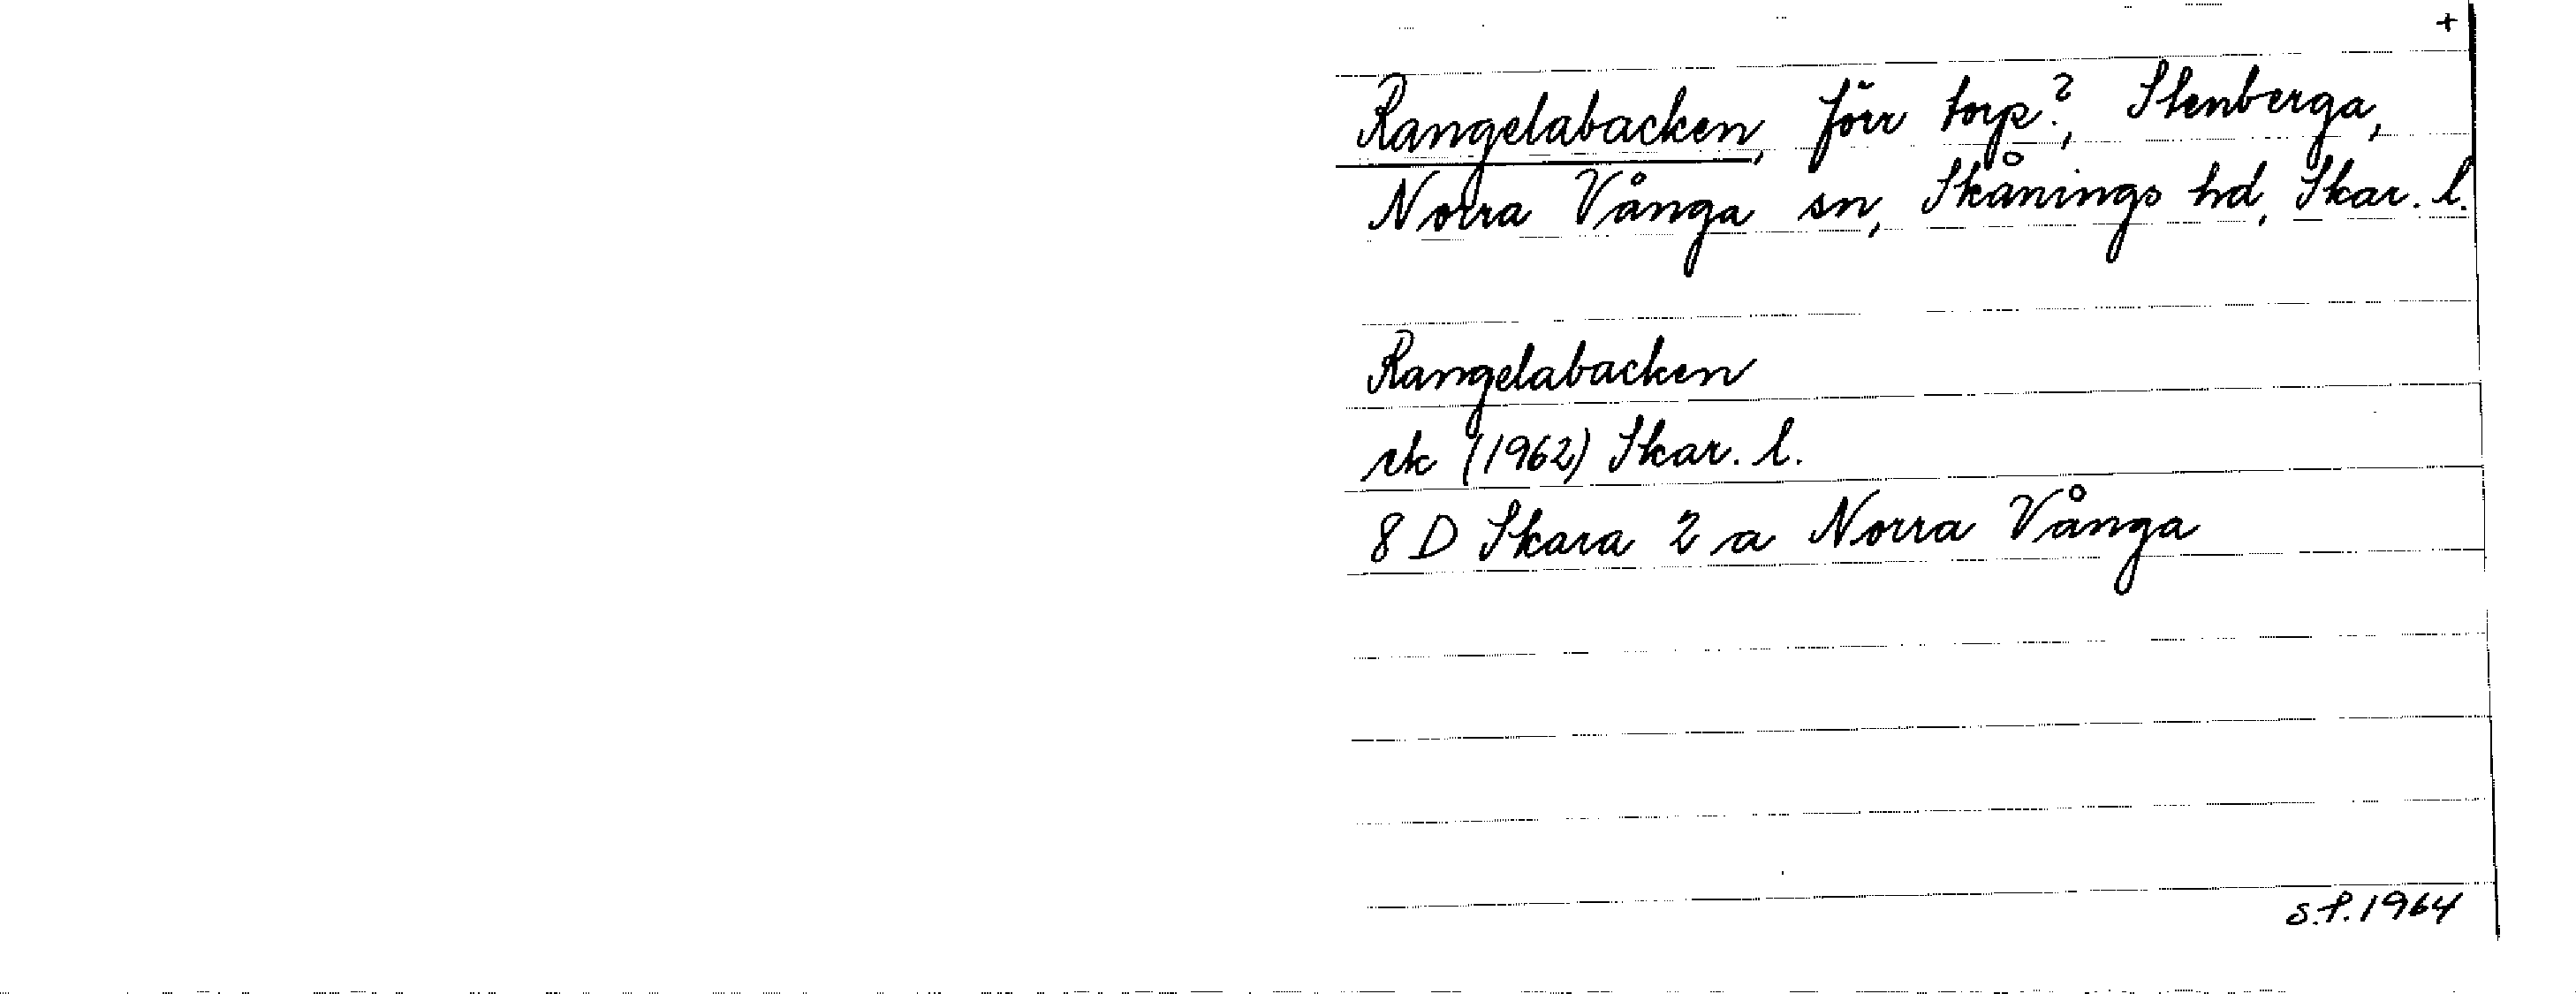 +
Rangelabacken, förr torp?, Stenberga,
Norra Vånga sn, Skånings hd, Skar. l.
Rangelabacken
rk (1962) Skar. l.
8 D Skara 2 a Norra Vånga
S.P. 1964